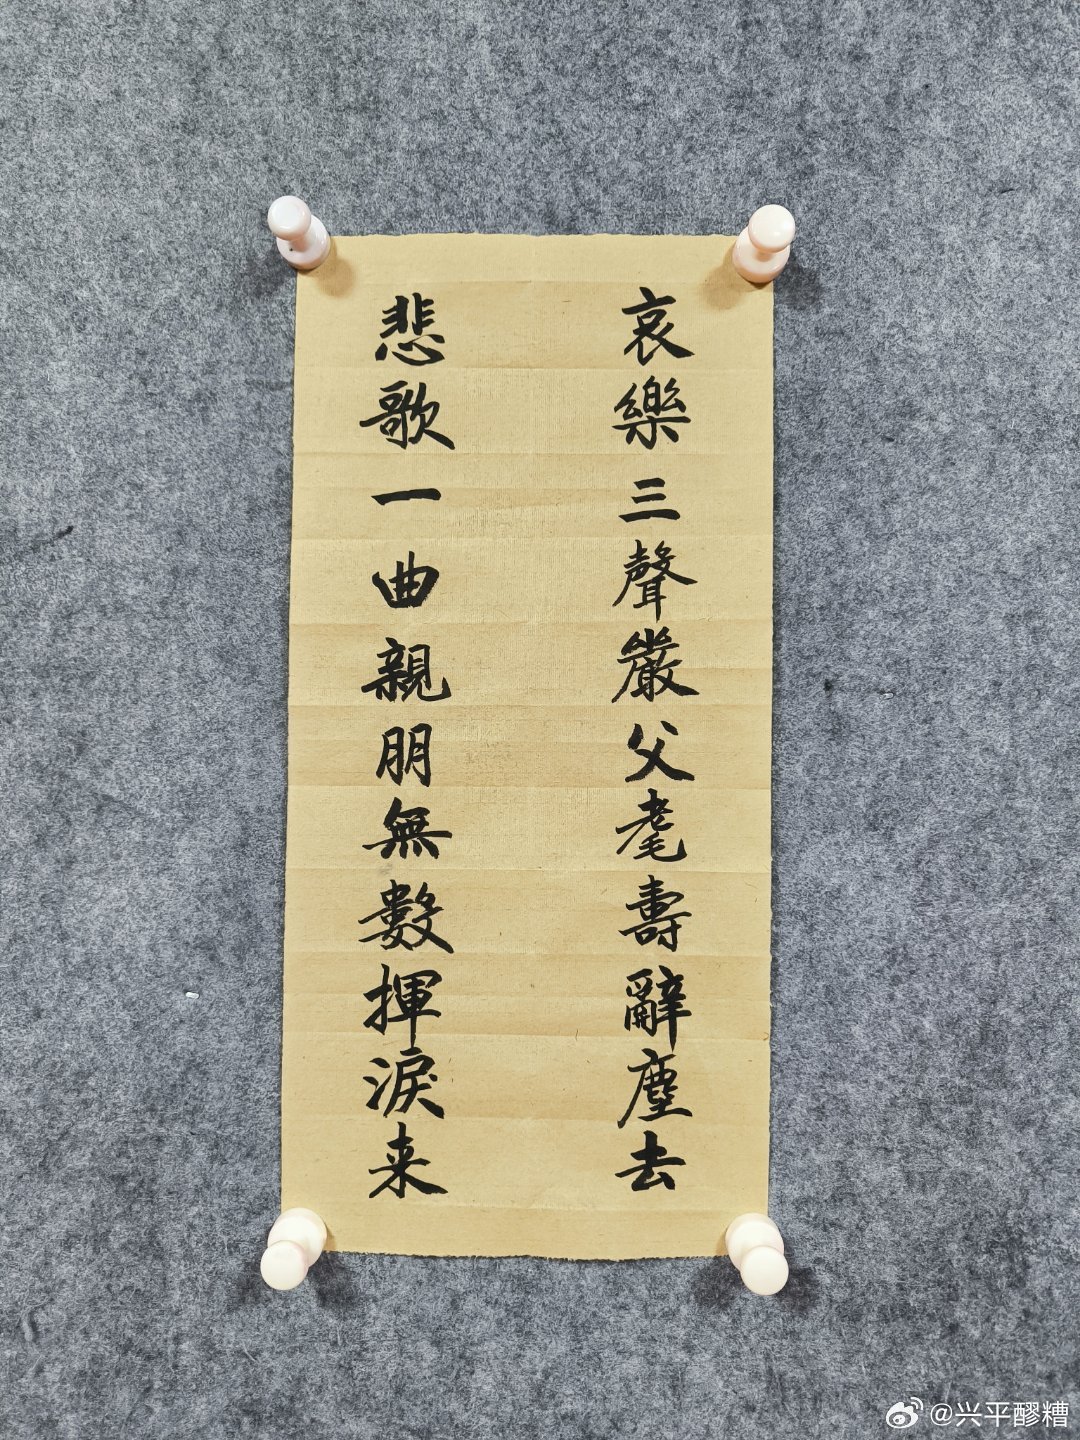 哀樂三聲嚴父耄壽辭塵去
悲歌一曲親朋無數揮淚来
@兴平醪糟